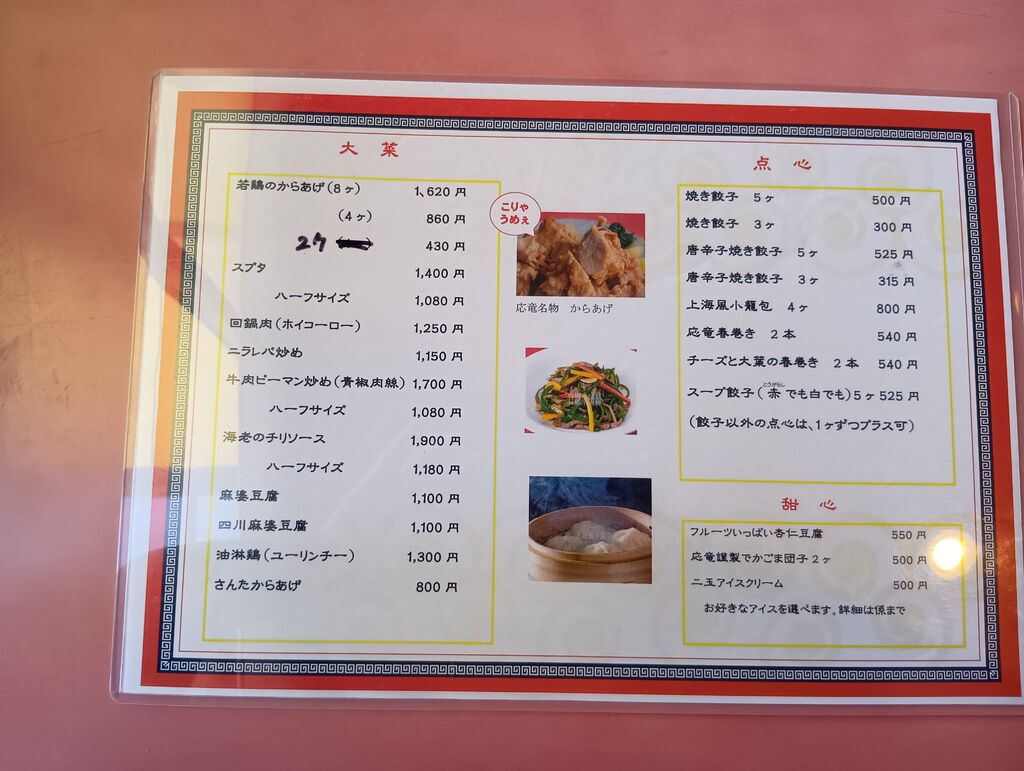 大 菜
若鶏のからあげ(8ヶ) 1,620 円
(4ヶ) 860 円
2ケ 430 円
スブタ 1,400 円
ハーフサイズ 1,080 円
回鍋肉(ホイコーロー) 1,250 円
ニラレバ炒め 1,150 円
牛肉ピーマン炒め(青椒肉絲) 1,700 円
ハーフサイズ 1,080 円
海老のチリソース 1,900 円
ハーフサイズ 1,180 円
麻婆豆腐 1,100 円
四川麻婆豆腐 1,100 円
油淋鶏(ユーリンチー) 1,300 円
さんたからあげ 800 円
こりゃ
うめぇ
応竜名物 からあげ
点 心
焼き餃子 5ヶ 500 円
焼き餃子 3ヶ 300 円
唐辛子焼き餃子 5ヶ 525 円
唐辛子焼き餃子 3ヶ 315 円
上海風小籠包 4ヶ 800 円
応竜春巻き 2本 540 円
チーズと大葉の春巻き 2本 540 円
とうがらし
スープ餃子(赤でも白でも)5ヶ 525 円
(餃子以外の点心は、1ヶずつプラス可)
甜 心
フルーツいっぱい杏仁豆腐 550 円
応竜謹製でかごま団子2ヶ 500 円
二玉アイスクリーム 500 円
お好きなアイスを選べます。詳細は係まで